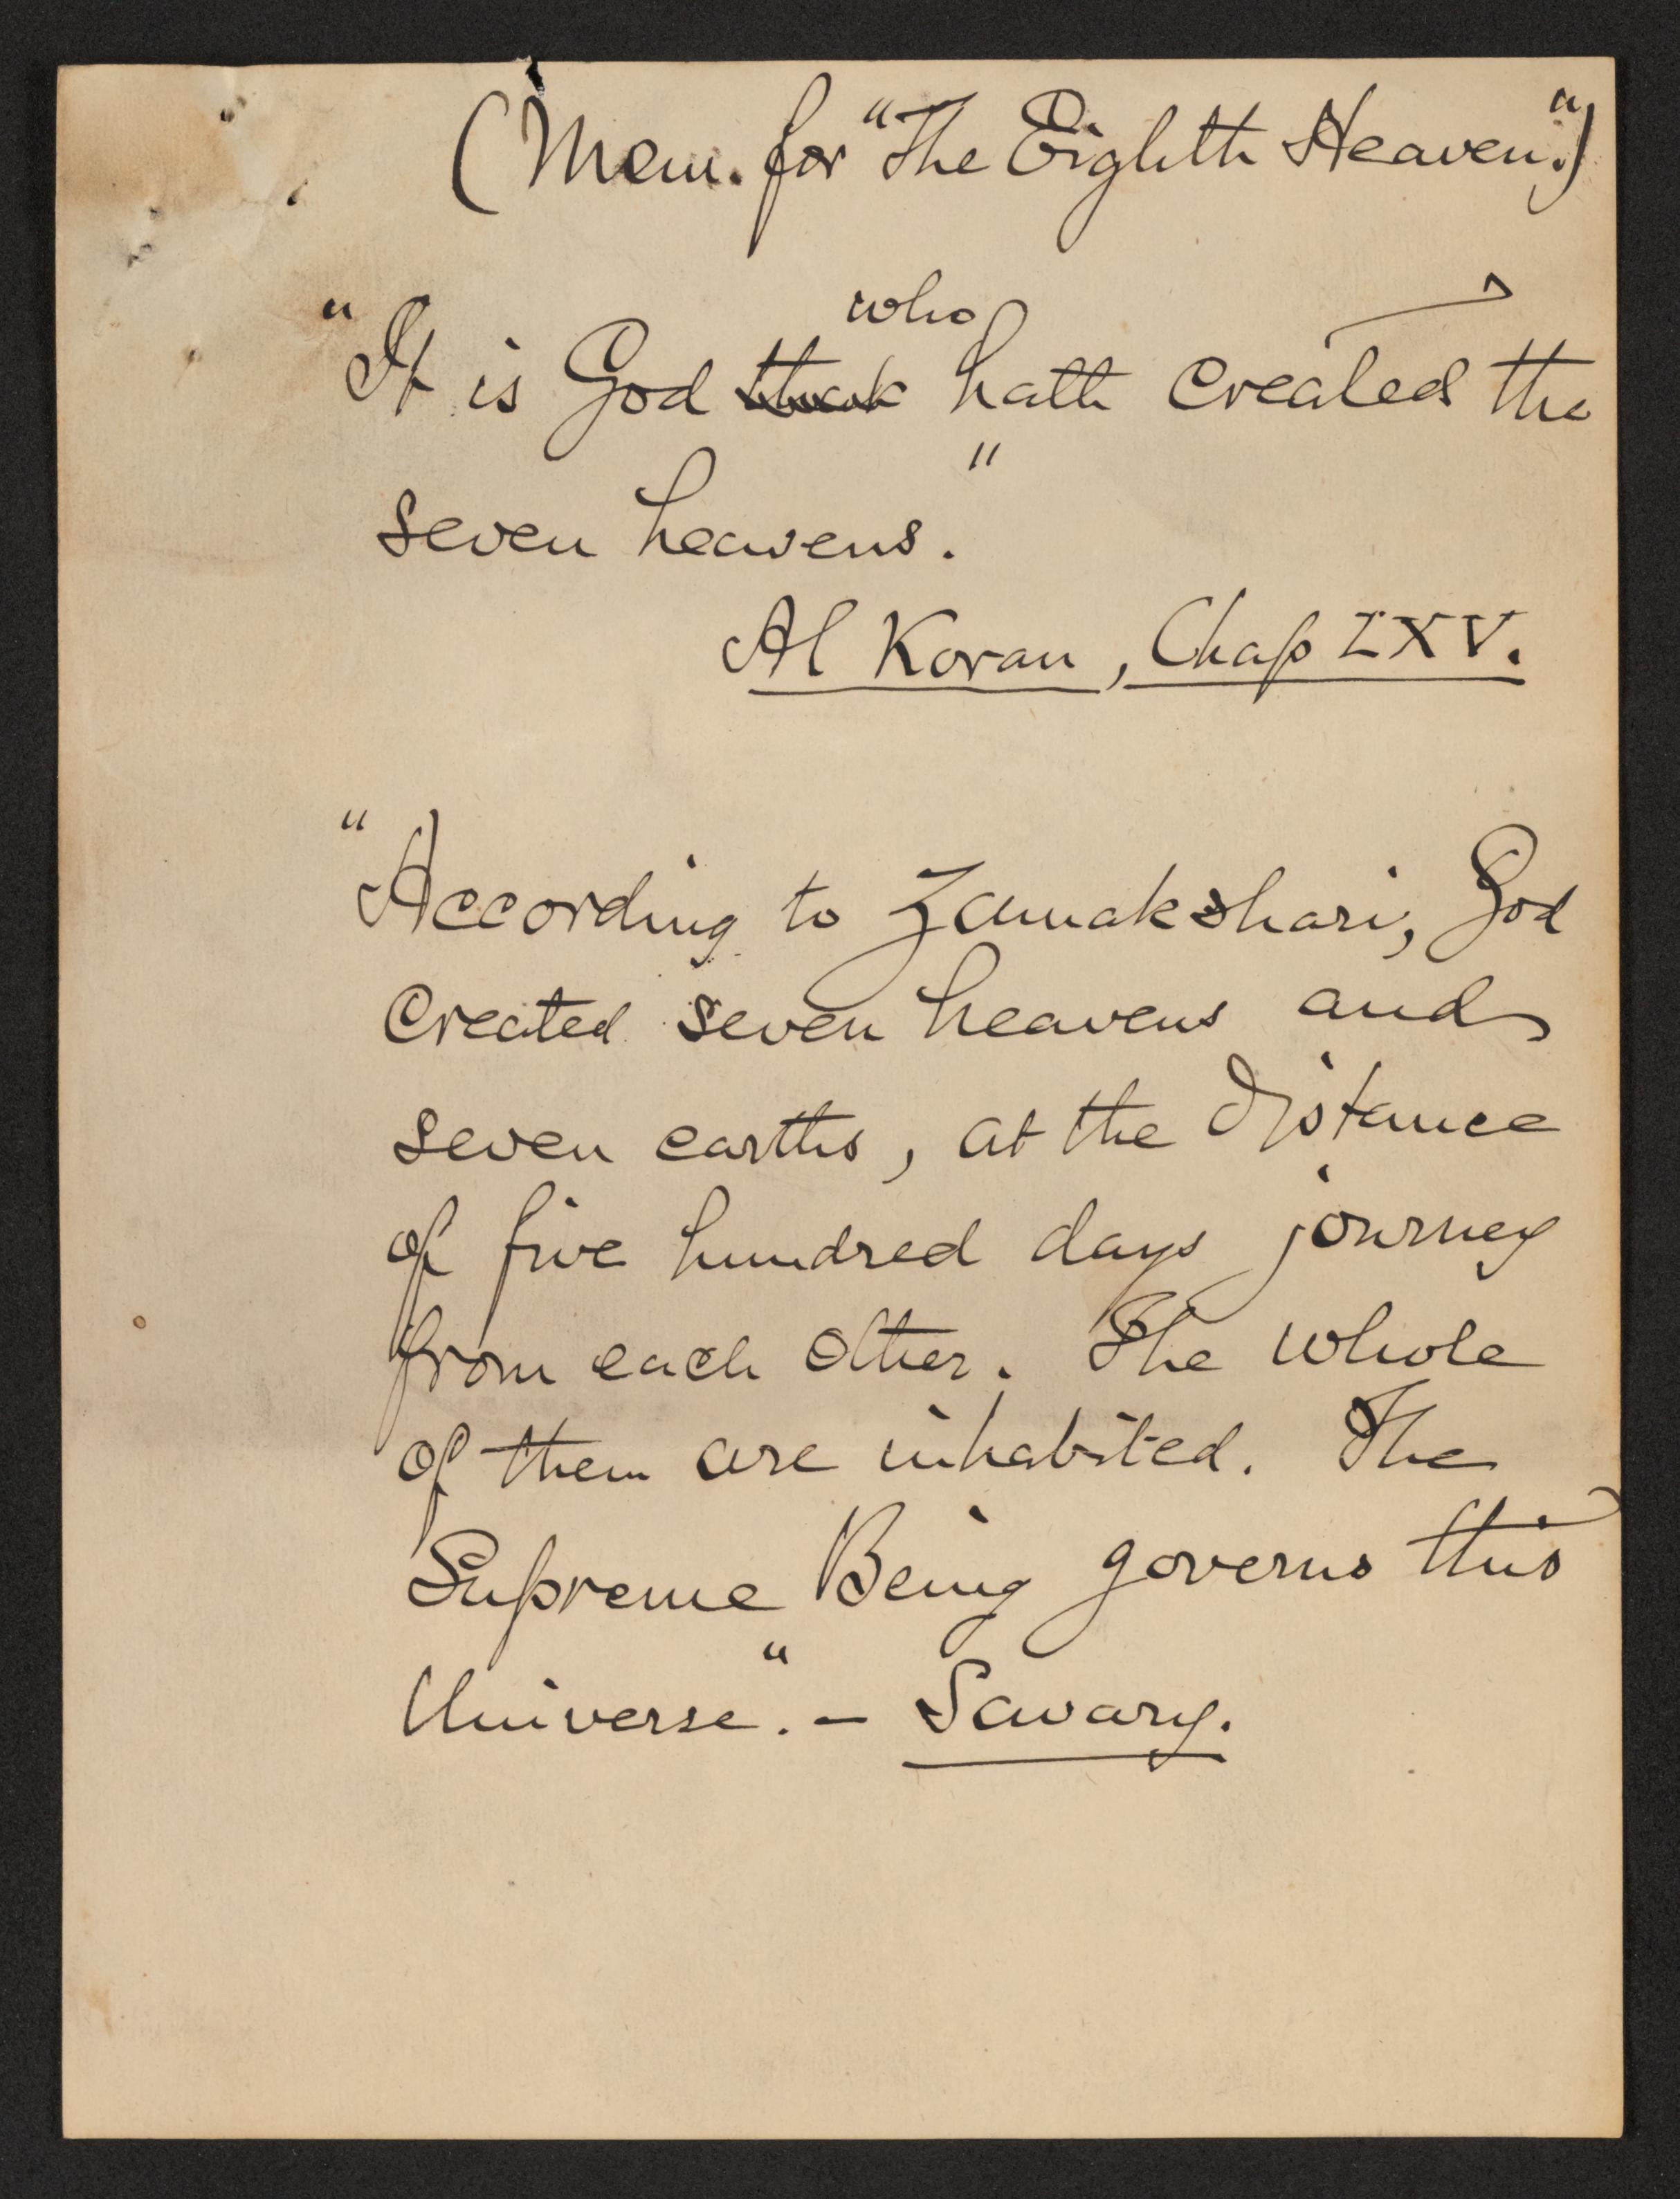 (Mem. for "The Eighth Heaven.")
who
"It is God that hath created the
seven heavens."
Al Koran, Chap LXV.
"According to Zamakshari, God
created seven heavens and
seven earths, at the distance
of five hundred days journey
from each other. The whole
of them are inhabited. The
Supreme Being governs this
Universe". – Savary.